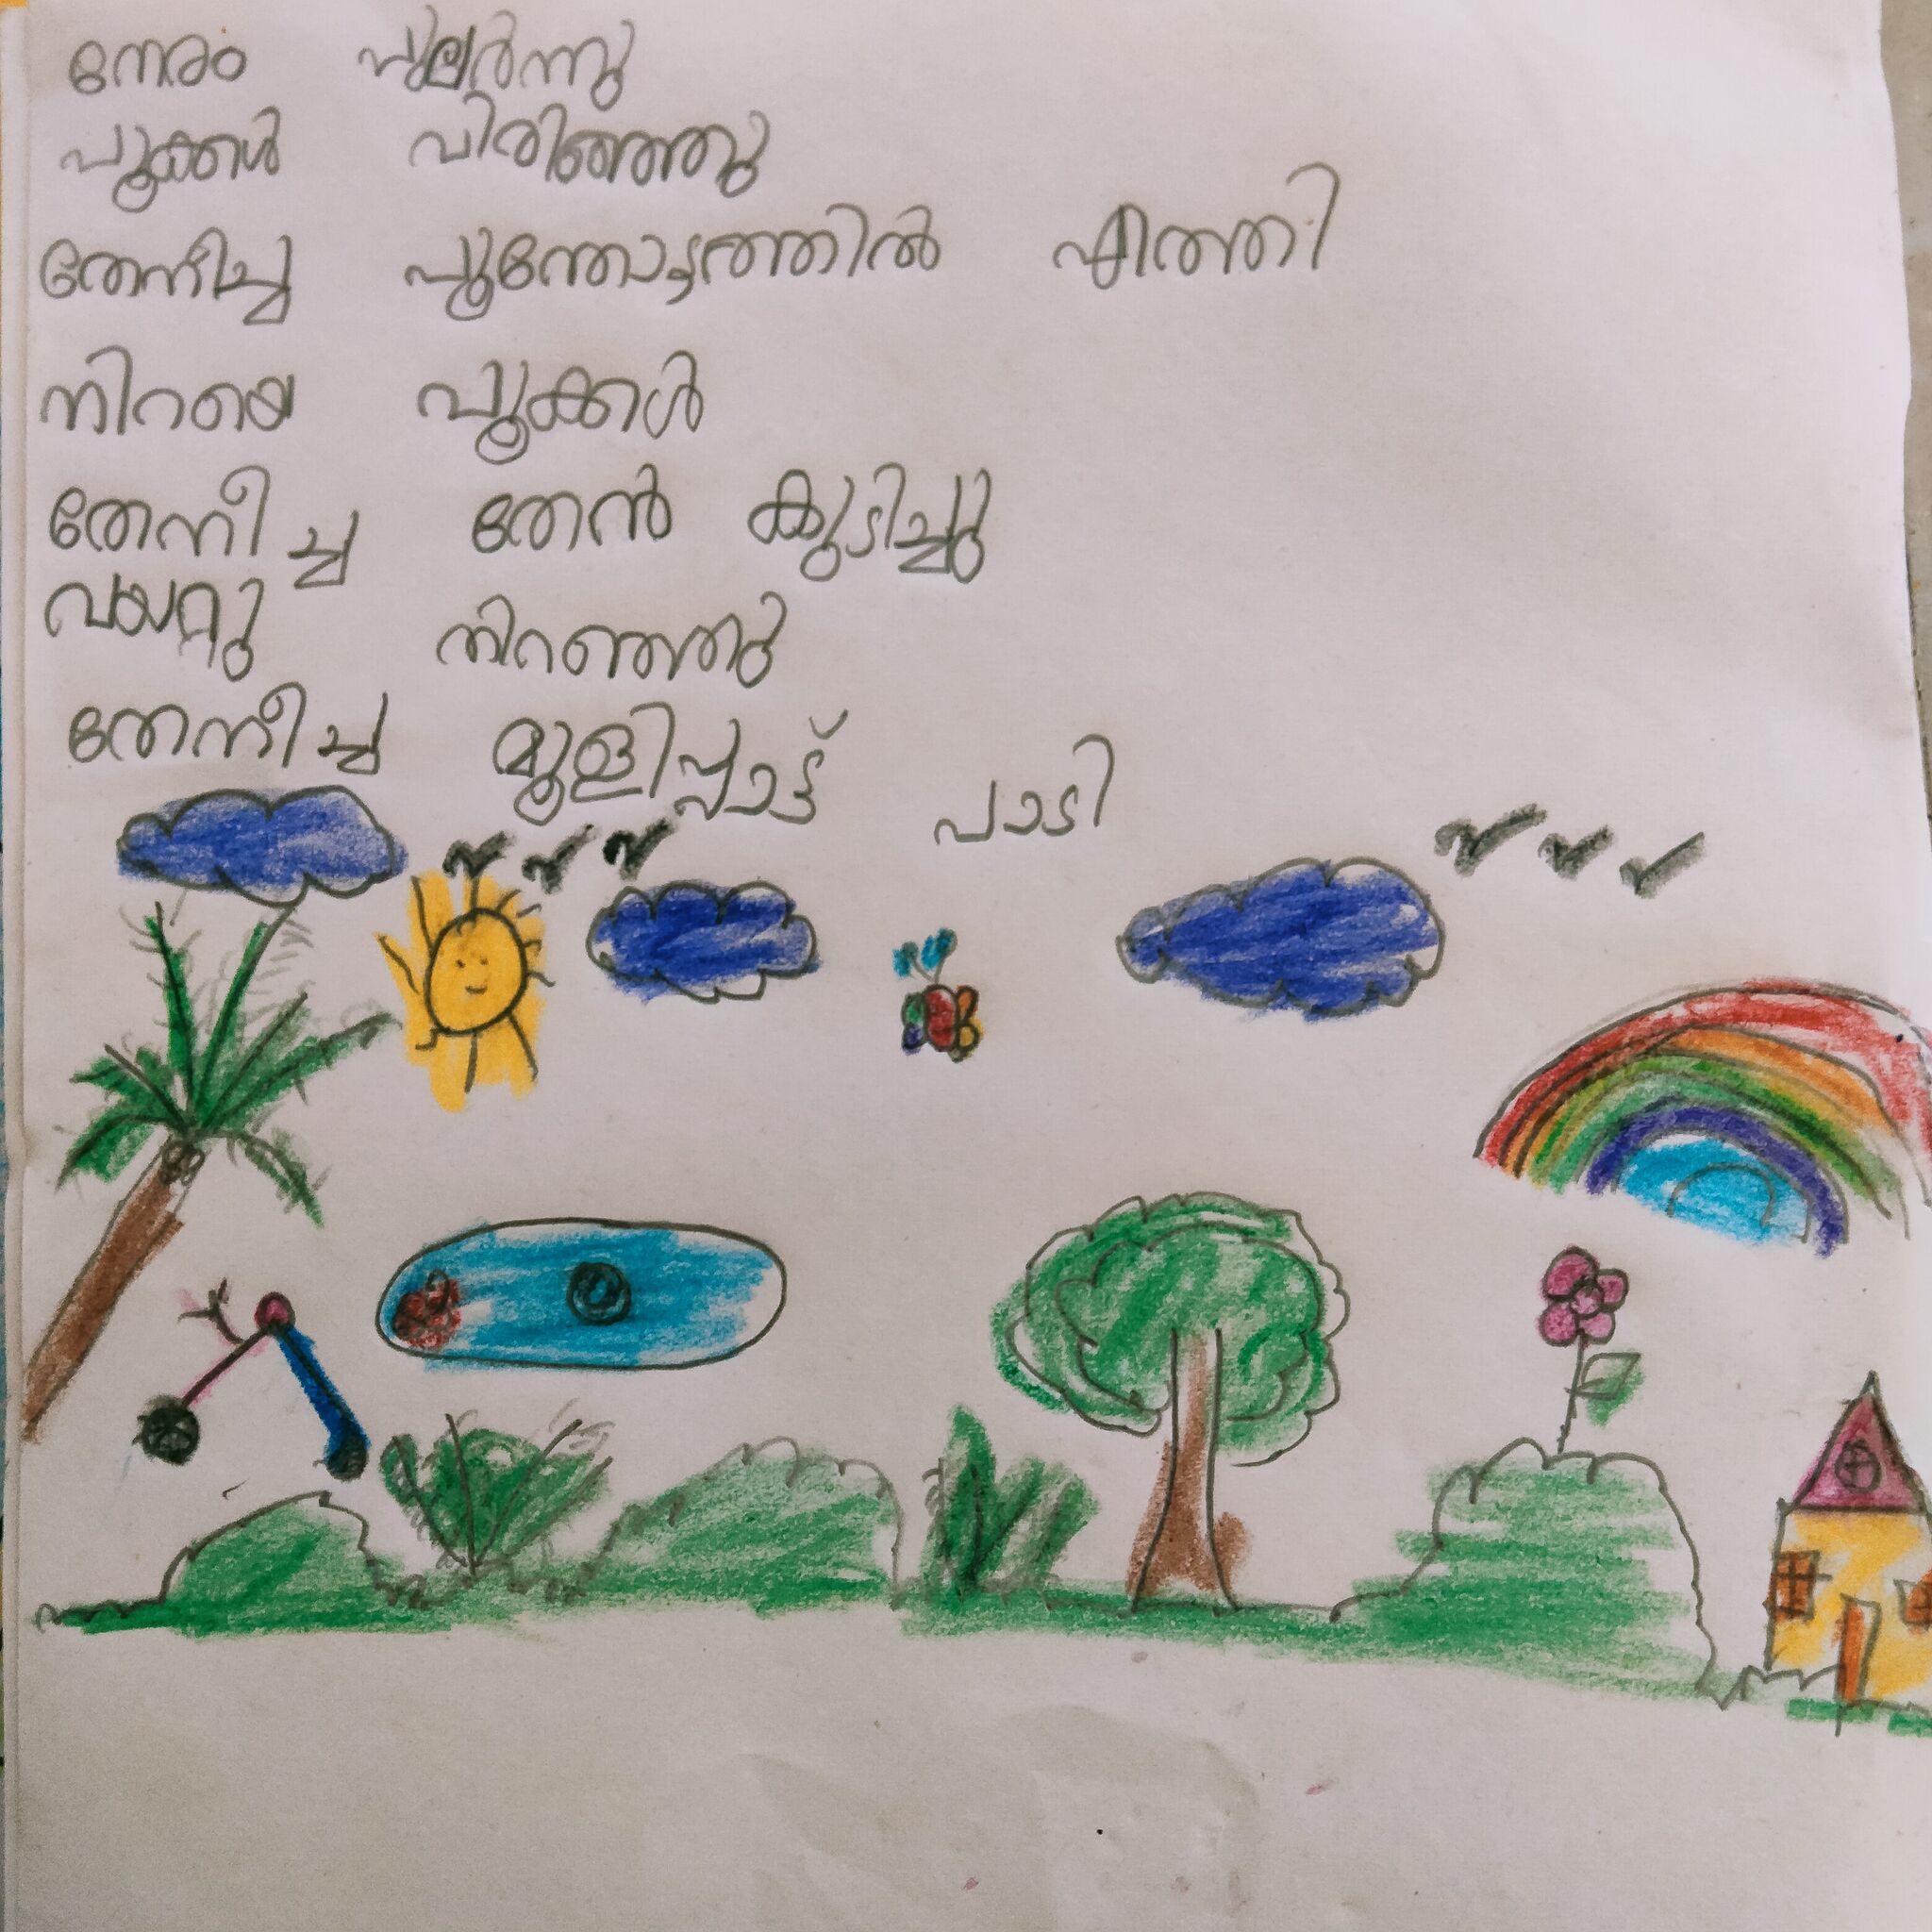 നേരം പുലർന്നു
പൂക്കൾ വിരിഞ്ഞു
തേനീച്ച പൂന്തോട്ടത്തിൽ എത്തി
നിറയെ പൂക്കൾ
തേനീച്ച തേൻ കുടിച്ചു
വയറു നിറഞ്ഞു
തേനീച്ച മൂളിപ്പാട്ട് പാടി